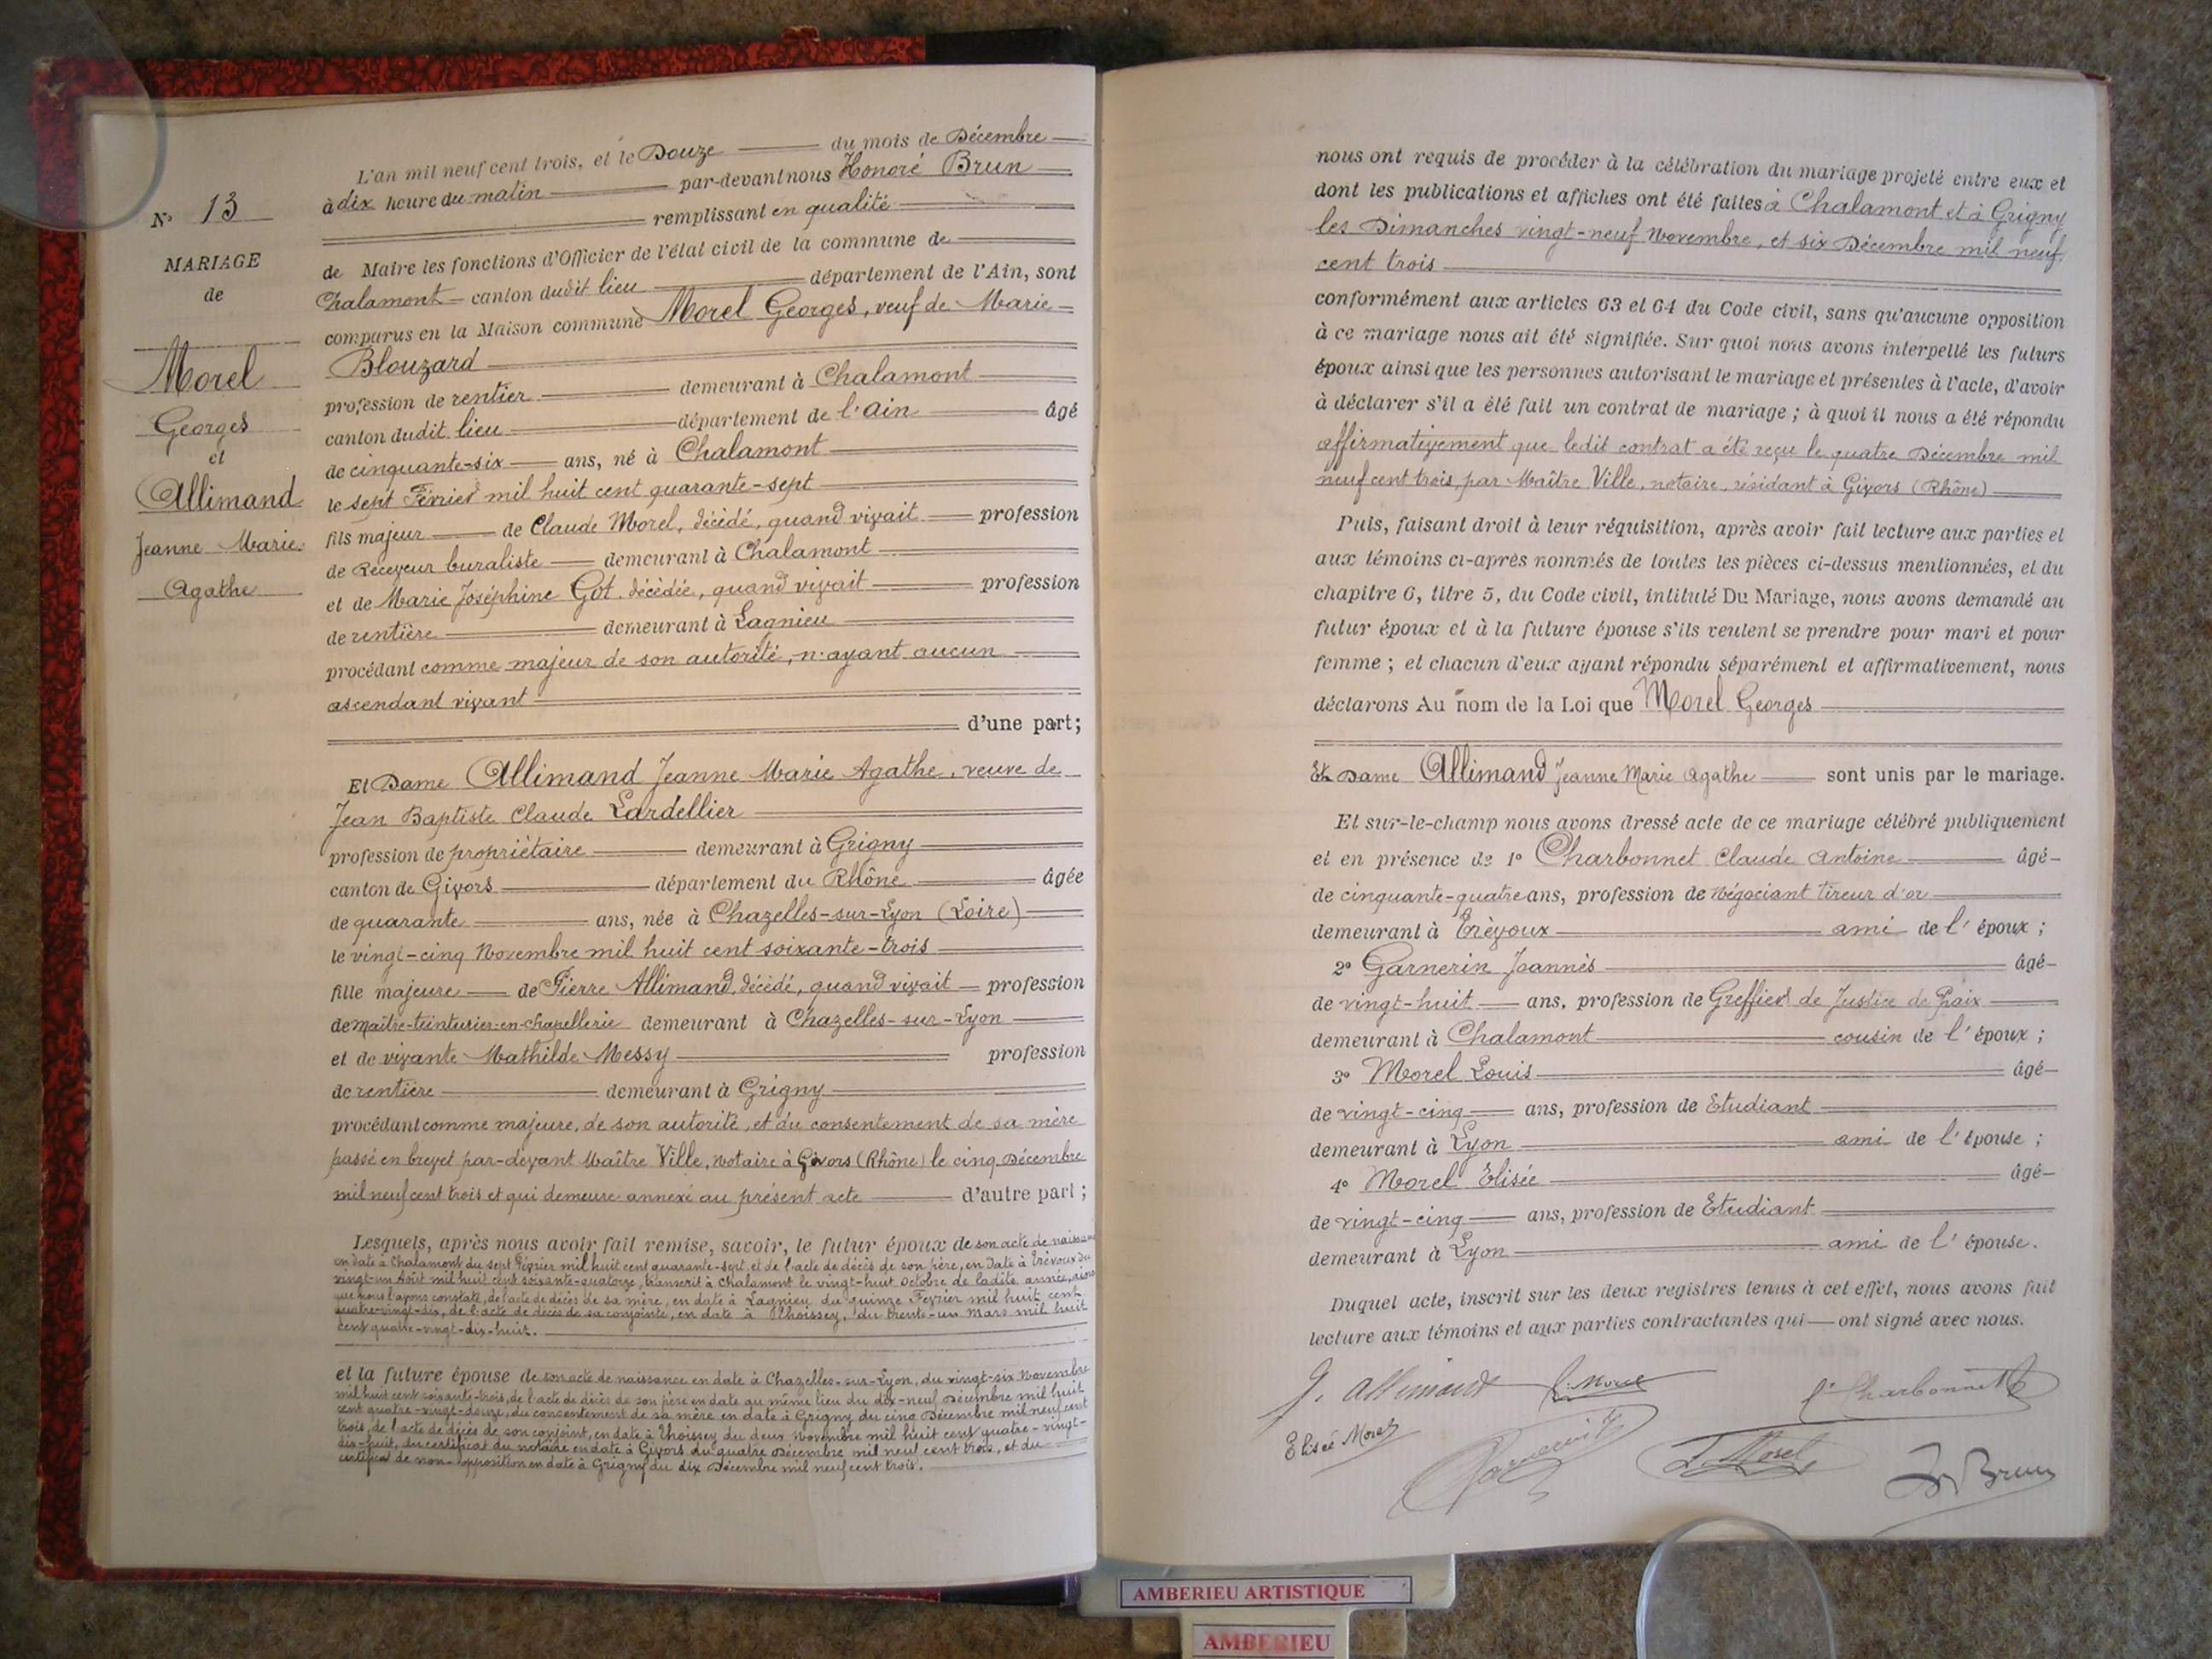 N° 13
MARIAGE
de
Morel
Georges
et
Allimand
Jeanne Marie
Agathe
L'an mil neuf cent trois, et le Douze du mois de Décembre
à dix heure du matin par-devant nous Honoré Brun
remplissant en qualité
de Maire les fonctions d'Officier de l'état civil de la commune de
Chalamont canton dudit lieu département de l'Ain, sont
comparus en la Maison commune Morel Georges, veuf de Marie
Blouzard
profession de rentier demeurant à Chalamont
canton dudit lieu département de l'Ain âgé
de cinquante-six ans, né à Chalamont
le sept Février mil huit cent quarante-sept
fils majeur de Claude Morel, décédé, quand vivait profession
de Receveur buraliste demeurant à Chalamont
et de Marie Joséphine Got, décédée, quand vivait profession
de rentière demeurant à Lagnieu
procédant comme majeur de son autorité, n'ayant aucun
ascendant vivant
d'une part;
Et Dame Allimand Jeanne Marie Agathe, veuve de
Jean Baptiste Claude Lardellier
profession de propriétaire demeurant à Grigny
canton de Givors département du Rhône âgée
de quarante ans, née à Chazelles-sur-Lyon (Loire)
le vingt-cinq Novembre mil huit cent soixante-trois
fille majeure de Pierre Allimand, décédé, quand vivait profession
de Maître-teinturier-en-chapellerie demeurant à Chazelles-sur-Lyon
et de vivante Mathilde Messy profession
de rentière demeurant à Grigny
procédant comme majeure, de son autorité, et du consentement de sa mère
passé en brevet par-devant Maître Ville, Notaire à Givors (Rhône) le cinq Décembre
mil neuf cent trois et qui demeure annexé au présent acte d'autre part;
Lesquels, après nous avoir fait remise, savoir, le futur époux de son acte de naissance
en date à Chalamont du sept Février mil huit cent quarante-sept, et de l'acte de décès de son père, en date à Trévoux du
vingt-un Août mil huit cent soixante-quatorze, transcrit à Chalamont le vingt-huit Octobre de ladite année, ainsi
que nous l'avons constaté, de l'acte de décès de sa mère, en date à Lagnieu du quinze Février mil huit cent
quatre-vingt-dix, de l'acte de décès de sa conjointe, en date à Thoissey, du trente-un Mars mil huit
cent quatre-vingt-dix-huit.
et la future épouse de son acte de naissance en date à Chazelles-sur-Lyon, du vingt-six Novembre
mil huit cent soixante-trois, de l'acte de décès de son père en date au même lieu du dix-neuf Décembre mil huit
cent quatre-vingt-douze, du consentement de sa mère en date à Grigny du cinq Décembre mil neuf cent
trois, de l'acte de décès de son conjoint, en date à Thoissey du deux Novembre mil huit cent quatre-vingt-
dix-huit, du certificat du notaire en date à Givors du quatre Décembre mil neuf cent trois, et du
certificat de non-opposition en date à Grigny du dix Décembre mil neuf cent trois.
nous ont requis de procéder à la célébration du mariage projeté entre eux et
dont les publications et affiches ont été faites à Chalamont et à Grigny
les Dimanches vingt-neuf Novembre, et six Décembre mil neuf
cent trois
conformément aux articles 63 et 64 du Code civil, sans qu'aucune opposition
à ce mariage nous ait été signifiée. Sur quoi nous avons interpellé les futurs
époux ainsi que les personnes autorisant le mariage et présentes à l'acte, d'avoir
à déclarer s'il a été fait un contrat de mariage; à quoi il nous a été répondu
affirmativement que ledit contrat a été reçu le quatre Décembre mil
neuf cent trois par Maître Ville, notaire, résidant à Givors (Rhône)
Puis, faisant droit à leur réquisition, après avoir fait lecture aux parties et
aux témoins ci-après nommés de toutes les pièces ci-dessus mentionnées, et du
chapitre 6, titre 5, du Code civil, intitulé Du Mariage, nous avons demandé au
futur époux et à la future épouse s'ils veulent se prendre pour mari et pour
femme; et chacun d'eux ayant répondu séparément et affirmativement, nous
déclarons Au nom de la Loi que Morel Georges
Et Dame Allimand Jeanne Marie Agathe sont unis par le mariage.
Et sur-le-champ nous avons dressé acte de ce mariage célébré publiquement
et en présence de 1° Charbonnet Claude Antoine âgé
de cinquante-quatre ans, profession de Négociant tireur d'or
demeurant à Trévoux ami de l'époux;
2° Garnerin Joannès âgé
de vingt-huit ans, profession de Greffier de Justice de Paix
demeurant à Chalamont cousin de l'époux;
3° Morel Louis âgé
de vingt-cinq ans, profession de Etudiant
demeurant à Lyon ami de l'épouse;
4° Morel Elisée âgé
de vingt-cinq ans, profession de Etudiant
demeurant à Lyon ami de l'épouse.
Duquel acte, inscrit sur les deux registres tenus à cet effet, nous avons fait
lecture aux témoins et aux parties contractantes qui ont signé avec nous.
J. Allimand G. Morel Cl Charbonnet
Elisée Morel Garnerin J L. Morel H Brun
AMBERIEU ARTISTIQUE
AMBERIEU